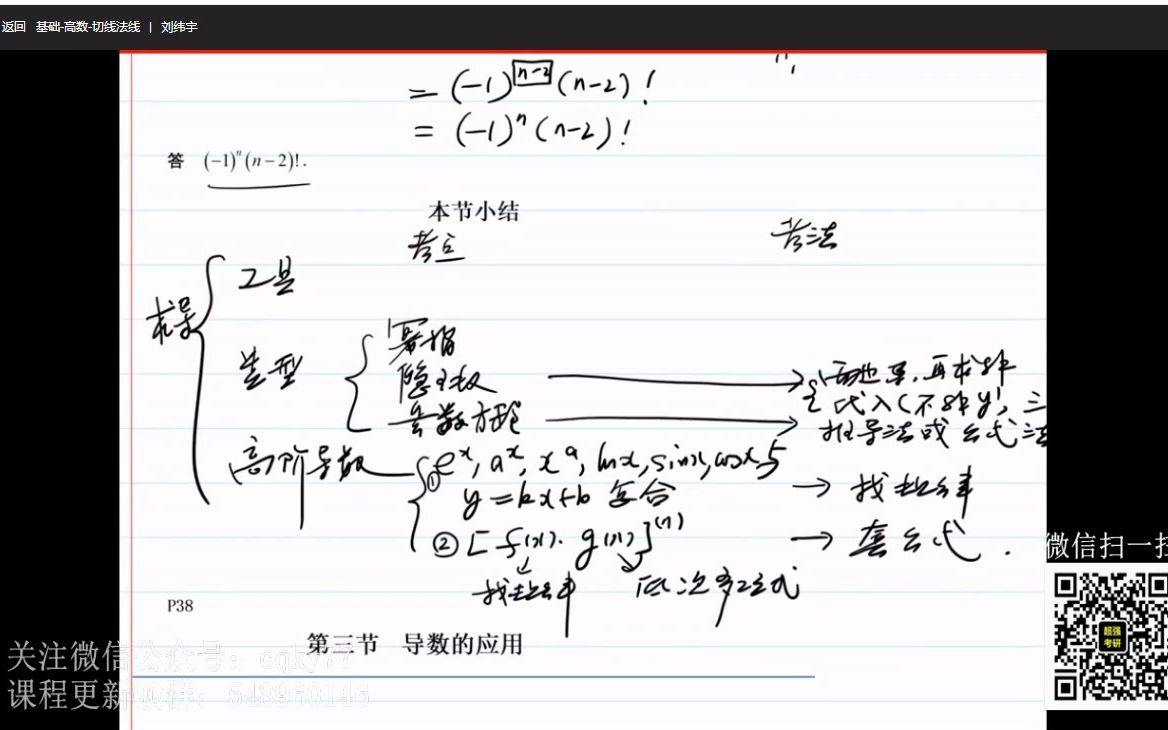 返回 基础-高数-切线法线 | 刘纬宇
= (-1)^[n-2] (n-2)!
= (-1)^n (n-2)!
答 (-1)^n(n-2)!.
本节小结
考点 考法
求导
工具
类型
幂指
隐函数
参数方程
两边求,再求解
代入(不解y),三
推导法或公式法
高阶导数
① e^x, a^x, x^a, lnx, sinx, cosx 与
y=kx+b 复合 → 找规律
② [f(x)·g(x)]^(n) → 套公式.
找规律 低次多项式
P38
第三节 导数的应用
微信扫一扫
超强
考研
关注微信公众号:cqky77
课程更新QQ群:548960146